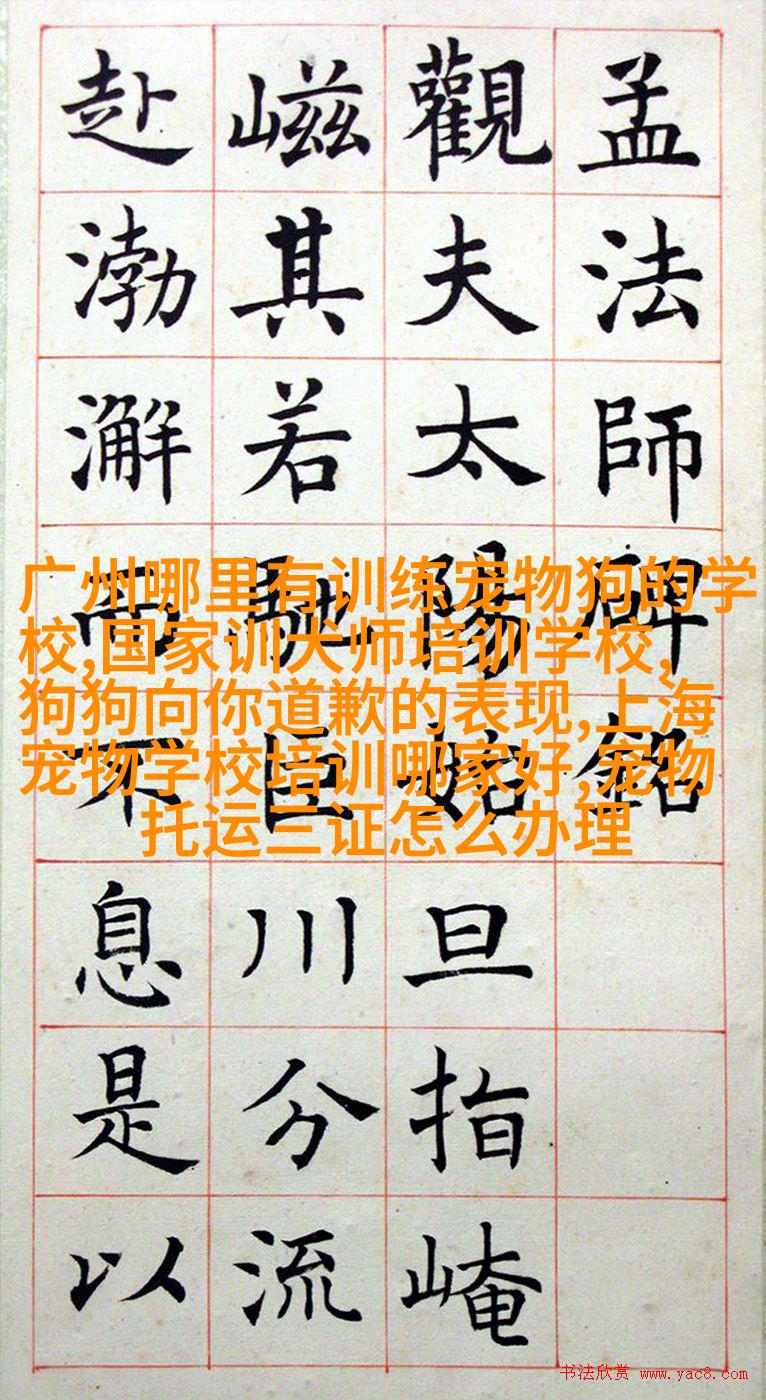 孟法師碑銘
觀夫太陽始旦指崦
嵫其若馳巨川分流
赴渤澥而不息是以
广州哪里有训练宠物狗的学
校,国家训犬师培训学校,
狗狗向你道歉的表现,上海
宠物学校培训哪家好,宠物
托运三证怎么办理
书法欣赏 www.yac8.com